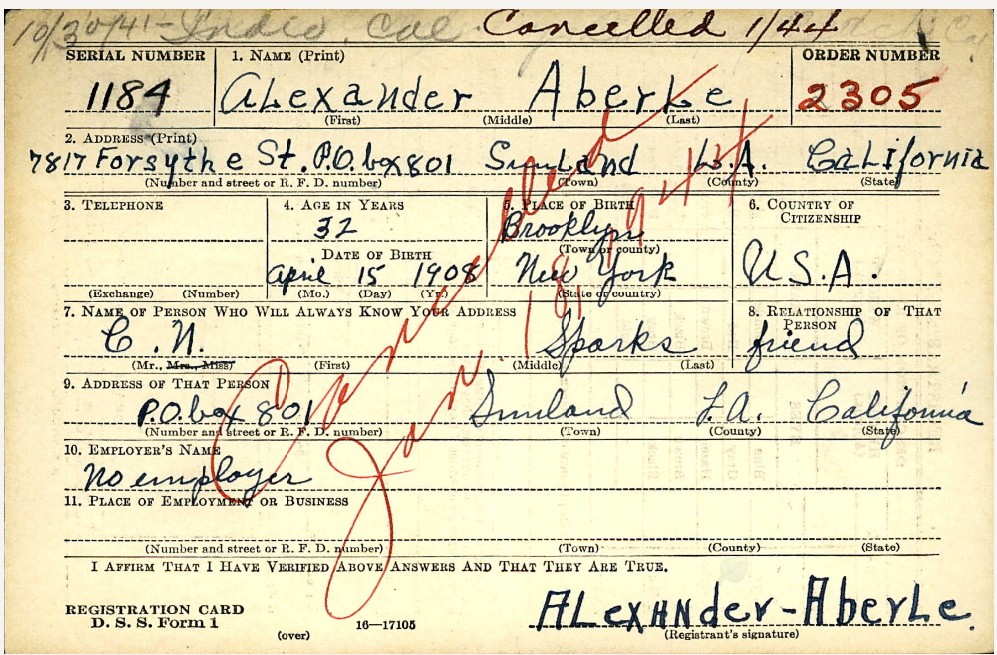 10/30/41 Indio, Cal Cancelled 1/44
SERIAL NUMBER 1. NAME (Print) ORDER NUMBER
1184 ALexander Aberle 2305
(First) (Middle) (Last)
2. ADDRESS (Print)
7817 Forsythe St. P.O. box 801 SunLand L.A. CaLifornia
(Number and street or R. F. D. number) (Town) (County) (State)
3. TELEPHONE 4. AGE IN YEARS 5. PLACE OF BIRTH 6. COUNTRY OF CITIZENSHIP
32 Brooklyn
(Town or county)
DATE OF BIRTH
April 15 1908 New York U.S.A.
(Exchange) (Number) (Mo.) (Day) (Yr.) (State or country)
7. NAME OF PERSON WHO WILL ALWAYS KNOW YOUR ADDRESS 8. RELATIONSHIP OF THAT PERSON
C. N. Sparks friend
(Mr., Mrs., Miss) (First) (Middle) (Last)
9. ADDRESS OF THAT PERSON
P.O. box 801 Sunland L.A. California
(Number and street or R. F. D. number) (Town) (County) (State)
10. EMPLOYER'S NAME
No employer
11. PLACE OF EMPLOYMENT OR BUSINESS
(Number and street or R. F. D. number) (Town) (County) (State)
I AFFIRM THAT I HAVE VERIFIED ABOVE ANSWERS AND THAT THEY ARE TRUE.
REGISTRATION CARD
D. S. S. Form 1
(over) 16—17105
ALexANder-AberLe.
(Registrant's signature)
Cancelled
Jan. 18, 1944